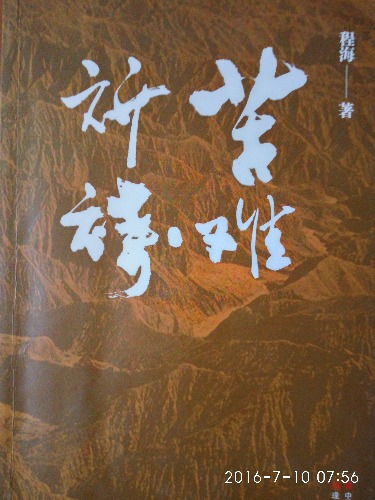 程海——著
苦难
祈祷
2016-7-10 07:56